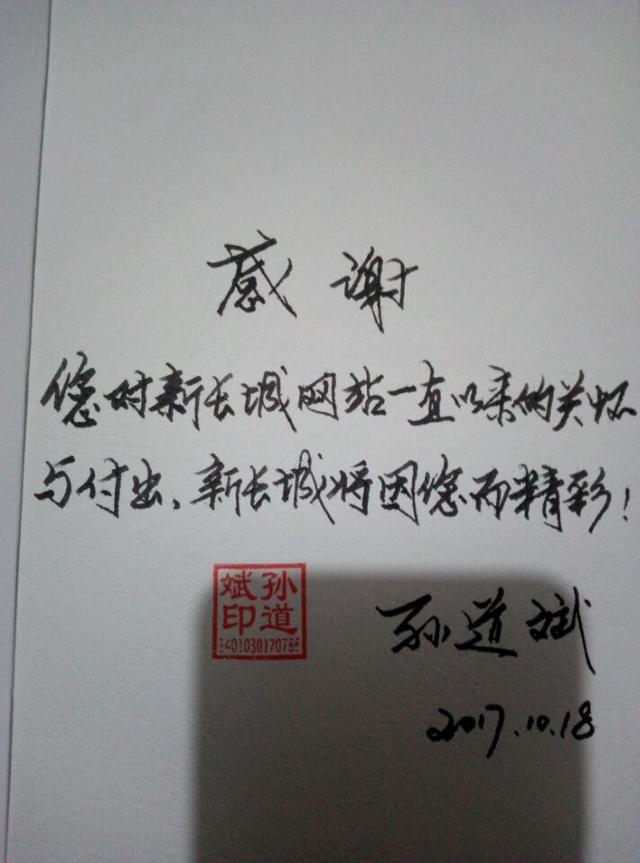 感谢
您对新长城网站一直以来的关怀
与付出，新长城将因您而精彩！
孙道斌印
3401030170786
孙道斌
2017.10.18